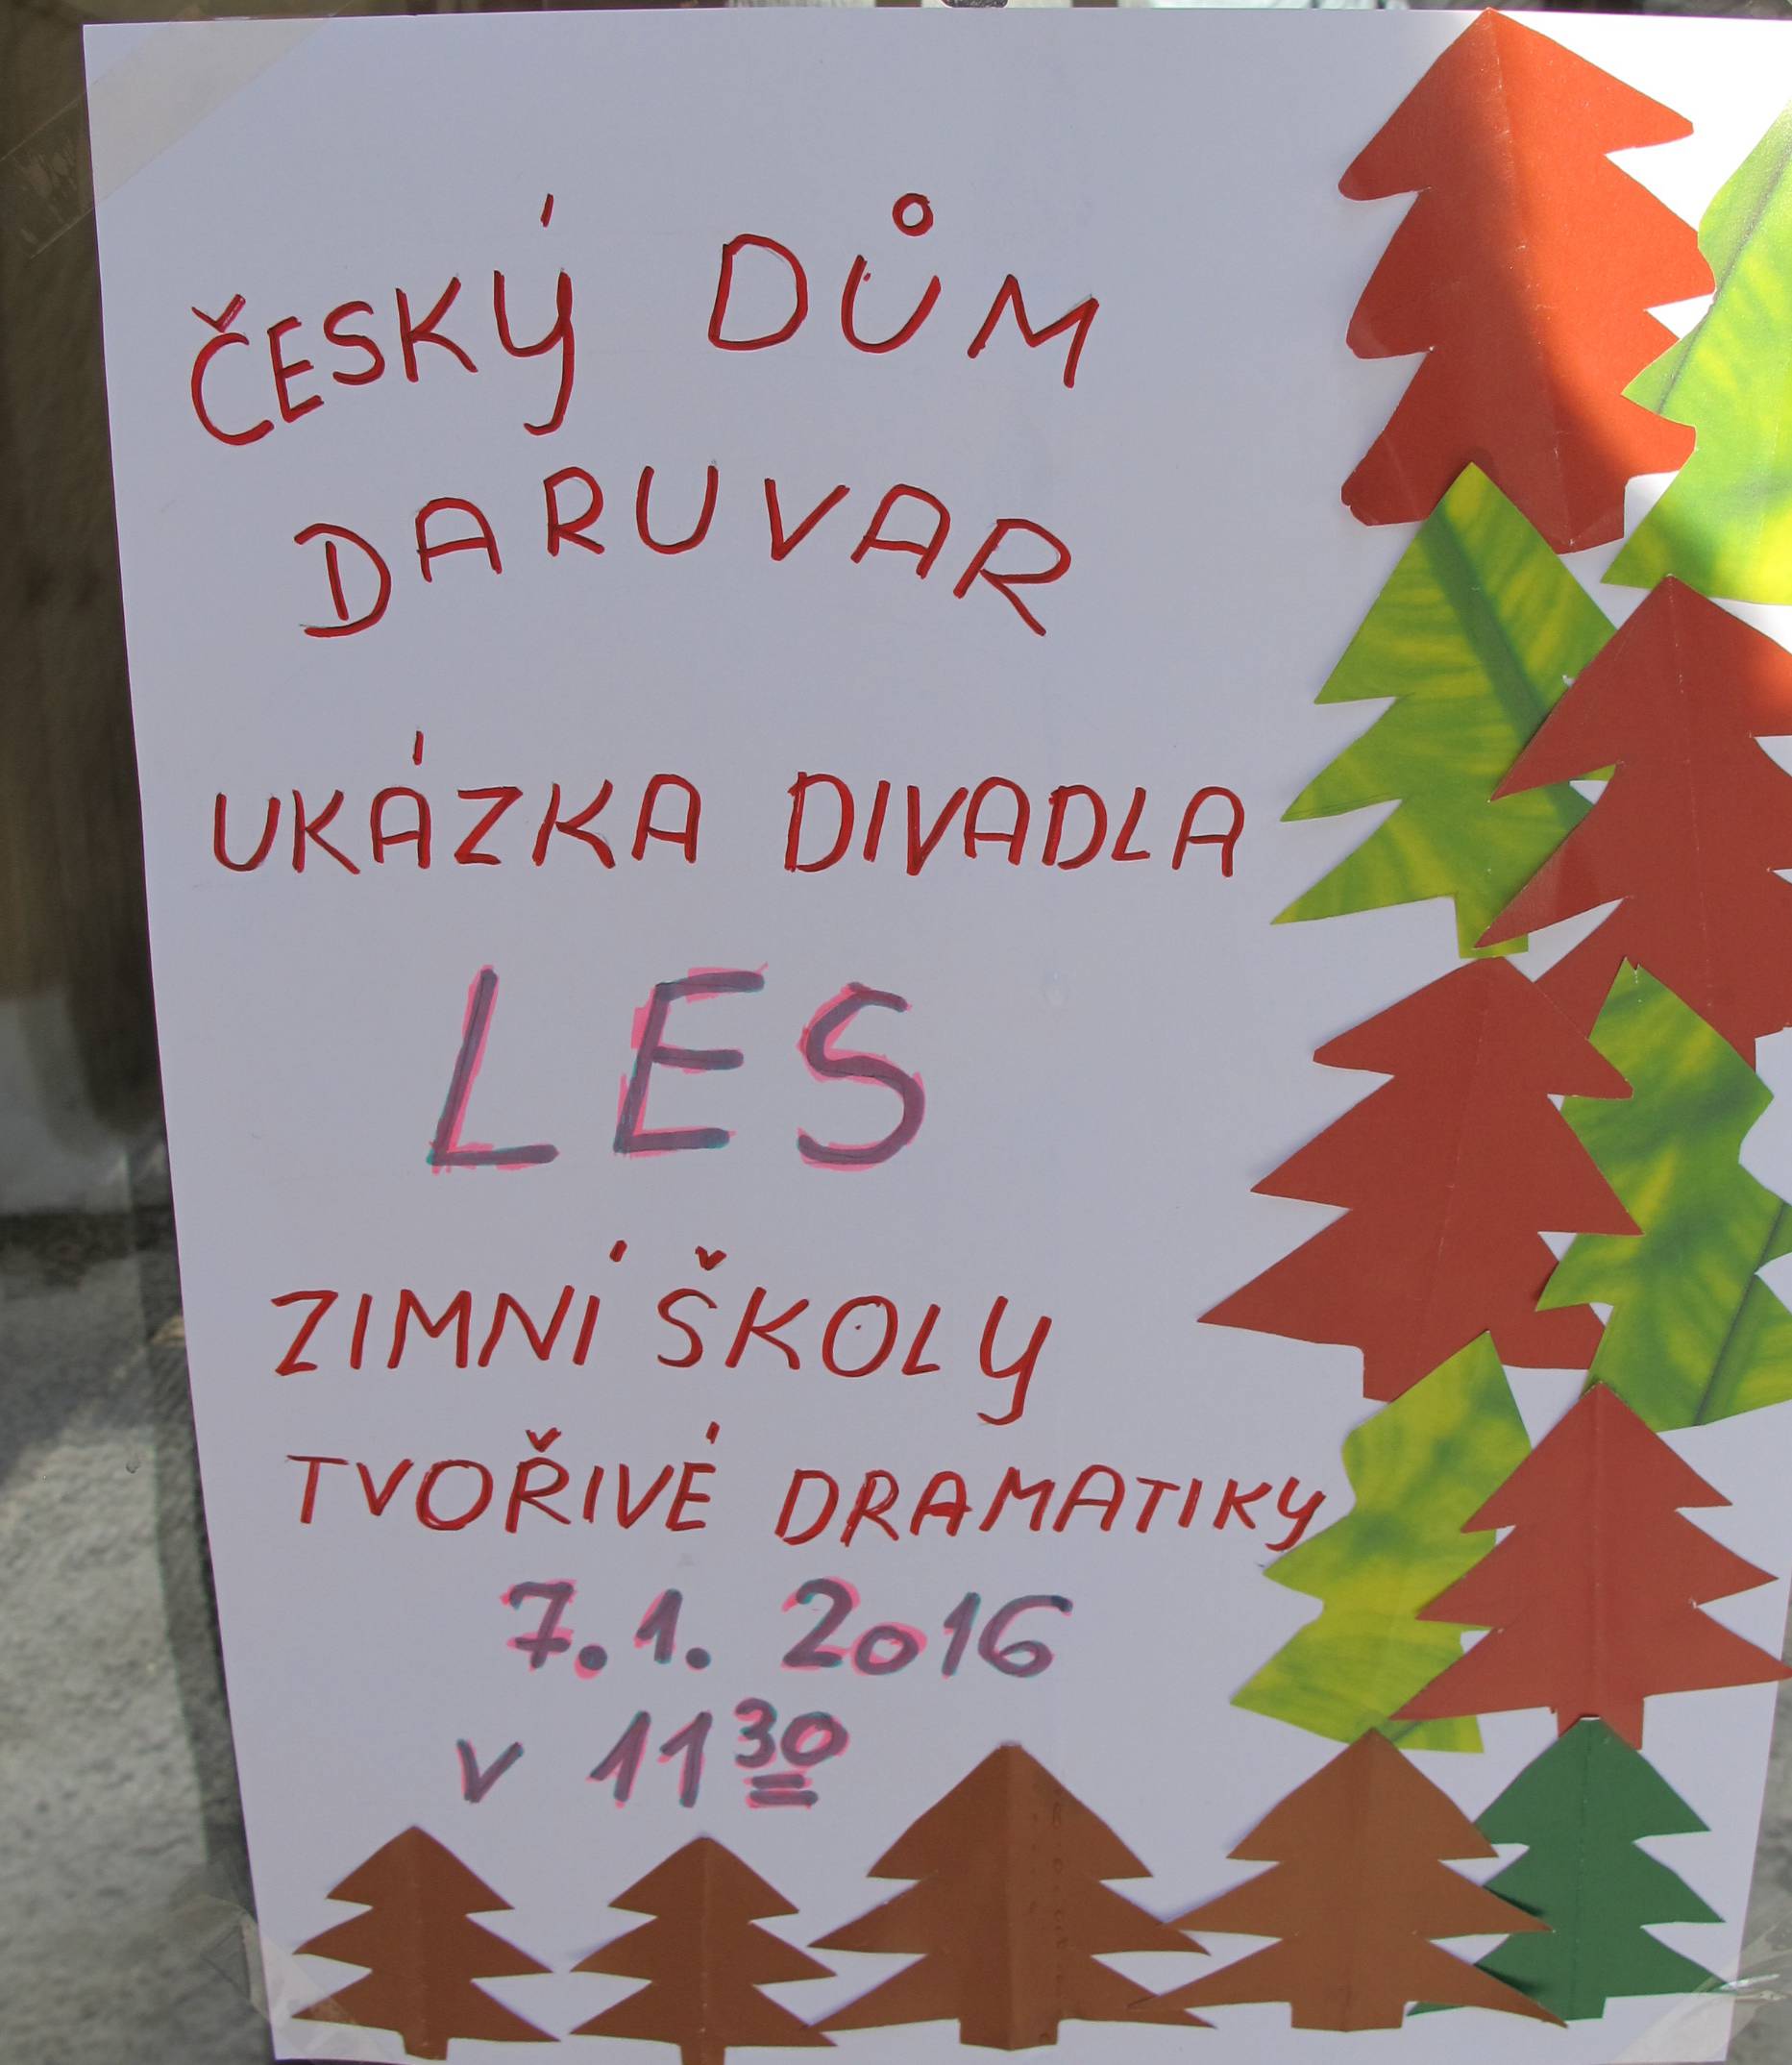 ČESKÝ DŮM
DARUVAR
UKÁZKA DIVADLA
LES
ZIMNÍ ŠKOLY
TVOŘIVÉ DRAMATIKY
7.1. 2016
v 11³⁰